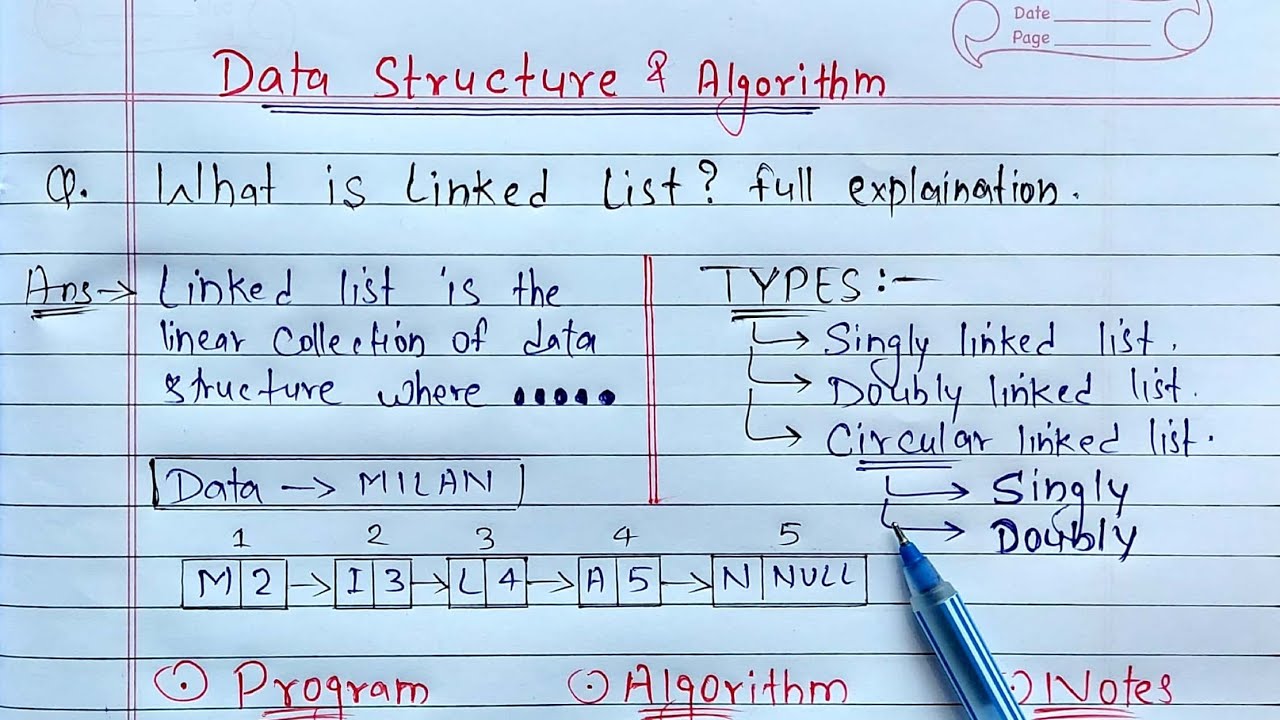 Date
Page
Data Structure & Algorithm
Q. What is linked list? full explaination.
Ans → Linked list is the
linear collection of data
structure where •••••
Data → MILAN
1 2 3 4 5
M 2 → I 3 → L 4 → A 5 → N NULL
TYPES :-
→ Singly linked list.
→ Doubly linked list.
→ Circular linked list.
→ Singly
→ Doubly
Program Algorithm Notes